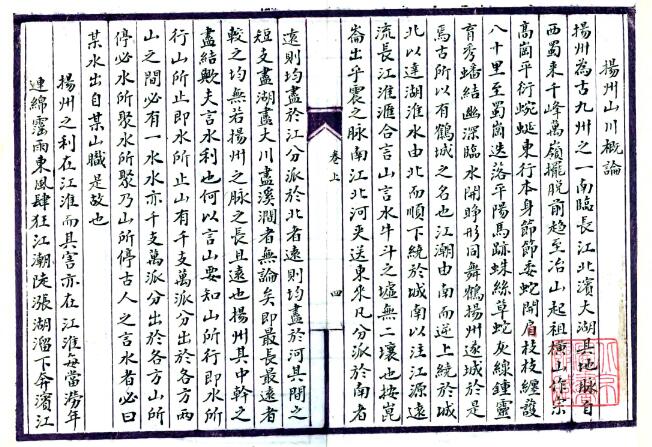 揚州山川概論
揚州為古九州之一南臨長江北濱大湖其地脉自
西蜀来千峰萬嶺擺脱前趋至冶山起祖橫山作宗
高崗平衍蜿蜒東行本身節節委蛇開眉枝枝纏護
八十里至蜀崗迭落平陽馬跡蛛絲草蛇灰線鍾靈
育秀蟠結幽深臨水開睁形同舞鶴揚州遠城於是
焉古所以有鶴城之名也江潮由南而逆上繞於城
北以達湖淮水由北而順下繞於城南以注江源遠
流長江淮滙合言山言水牛斗之墟無二壤也按崑
崙出乎震之脉南江北河夾送東来凡分派於南者
卷上
四
遠則均盡於江分派於北者遠則均盡於河其間之
短支盡湖盡大川盡溪澗者無論矣即最長最遠者
較之均無若揚州之脉之長且遠也揚州其中幹之
盡結歟夫言水利也何以言山要知山所行即水所
行山所止即水所止山有千支萬派分出於各方兩
山之間必有一水水亦千支萬派分出於各方山所
停必水所聚水所聚乃山所停古人之言水者必曰
某水出自某山職是故也
揚州之利在江淮而其害亦在江淮每當澇年
連綿霪雨東風肆狂江潮陡漲湖溜下奔濱江